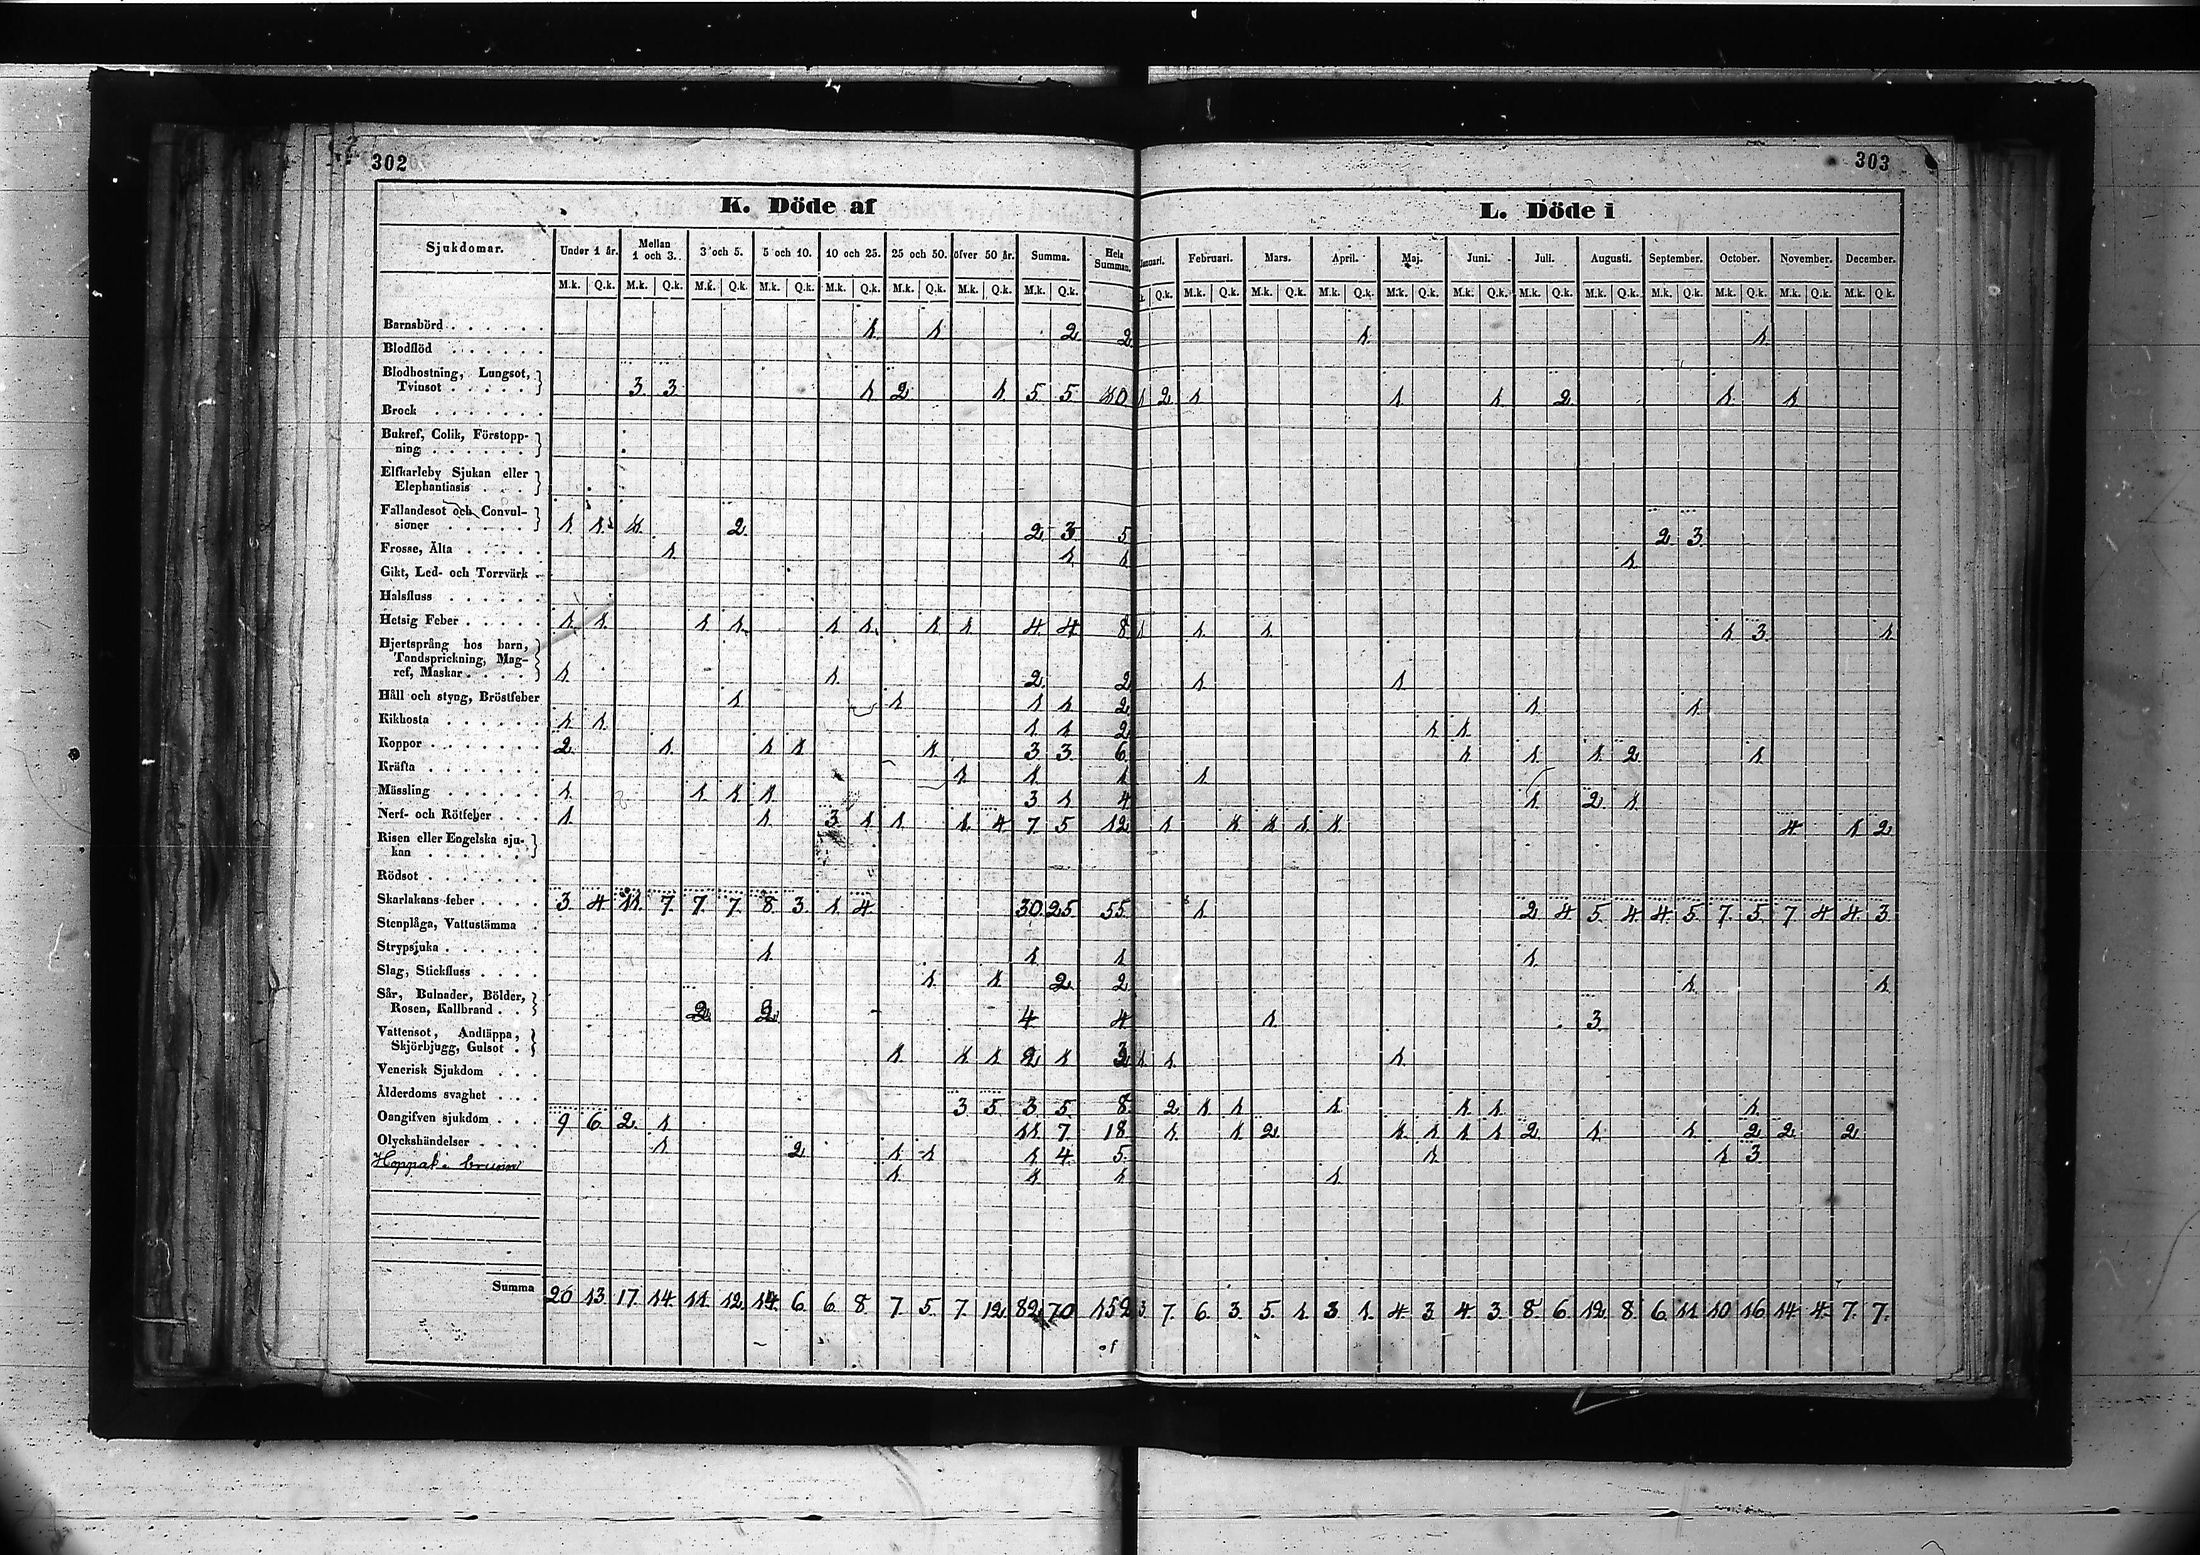 302
303
K. Döde af
L. Döde i
Sjukdomar. Under 1 år. Mellan 1 och 3. 3 och 5. 5 och 10. 10 och 25. 25 och 50. öfver 50 år. Summa. Hela Summan. Februari. Mars. April. Maj. Juni. Juli. Augusti. September. October. November. December.
M.k. Q.k. M.k. Q.k. M.k. Q.k. M.k. Q.k. M.k. Q.k. M.k. Q.k. M.k. Q.k. M.k. Q.k. Q.k. M.k. Q.k. M.k. Q.k. M.k. Q.k. M.k. Q.k. M.k. Q.k. M.k. Q.k. M.k. Q.k. M.k. Q.k. M.k. Q.k. M.k. Q.k. M.k. Q.k.
Barnsbörd 1. 1. 2. 2 1. 1
Blodflöd
Blodhostning, Lungsot,
Tvinsot 3. 3. 1 2 1. 5. 5. 10 1 2 1 1. 1. 2. 1. 1.
Brock
Bukref, Colik, Förstopp-
ning
Elfkarleby Sjukan eller
Elephantiasis
Fallandesot och Convul-
sioner 1. 1. 1. 2. 2 3 5 2. 3.
Frosse, Älta 1. 1. 1 1.
Gikt, Led- och Torrvärk
Halsfluss
Hetsig Feber 1. 1. 1. 1. 1. 1. 1. 1. 4. 4. 8 1 1. 1. 1. 3. 1
Hjertsprång hos barn,
Tandsprickning, Mag-
ref, Maskar 1. 1. 2. 2 1. 1.
Håll och styng, Bröstfeber 1. 1. 1. 1. 2 1. 1.
Kikhosta 1. 1. 1. 1. 2 1 1.
Koppor 2. 1. 1 1 1. 3. 3. 6 1. 1. 1 2. 1.
Kräfta 1. 1. 1 1.
Mässling 1. 1. 1. 1. 3 1. 4 1. 2. 1.
Nerf- och Rötfeber 1. 1. 3. 1 1. 1. 4 7. 5 12 1 1. 1. 1 1. 4. 1 2
Risen eller Engelska sju-
kan
Rödsot
Skarlakans feber 3. 4. 11. 7. 7. 7. 8. 3. 1. 4. 30 25 55 1. 2 4 5. 4. 4. 5. 7. 5. 7 4 4. 3.
Stenplåga, Vattustämma
Strypsjuka 1. 1. 1 1.
Slag, Stickfluss 1. 1. 2 2 1. 1.
Sår, Bulnader, Bölder,
Rosen, Kallbrand 2. 2. 4 4 1. 3.
Vattensot, Andtäppa,
Skjörbjugg, Gulsot 1. 1. 1 2 1 3 1 1. 1.
Venerisk Sjukdom
Ålderdoms svaghet 3 5 3. 5. 8. 2 1 1. 1. 1. 1. 1.
Oangifven sjukdom 9 6. 2. 1 11. 7. 18 1. 1 2. 1. 1 1 1 2. 1. 1. 2 2. 2
Olyckshändelser 1. 2. 1 1 1 4. 5. 1. 1. 3.
Hoppat i brunn 1. 1 1 1.
Summa 20 13. 17. 14. 11. 12. 14. 6. 6. 8. 7. 5. 7. 12. 82. 70 152 3. 7. 6. 3. 5. 1. 3. 1. 4. 3. 4. 3. 8. 6. 12. 8. 6. 11. 10 16 14. 4. 7. 7.